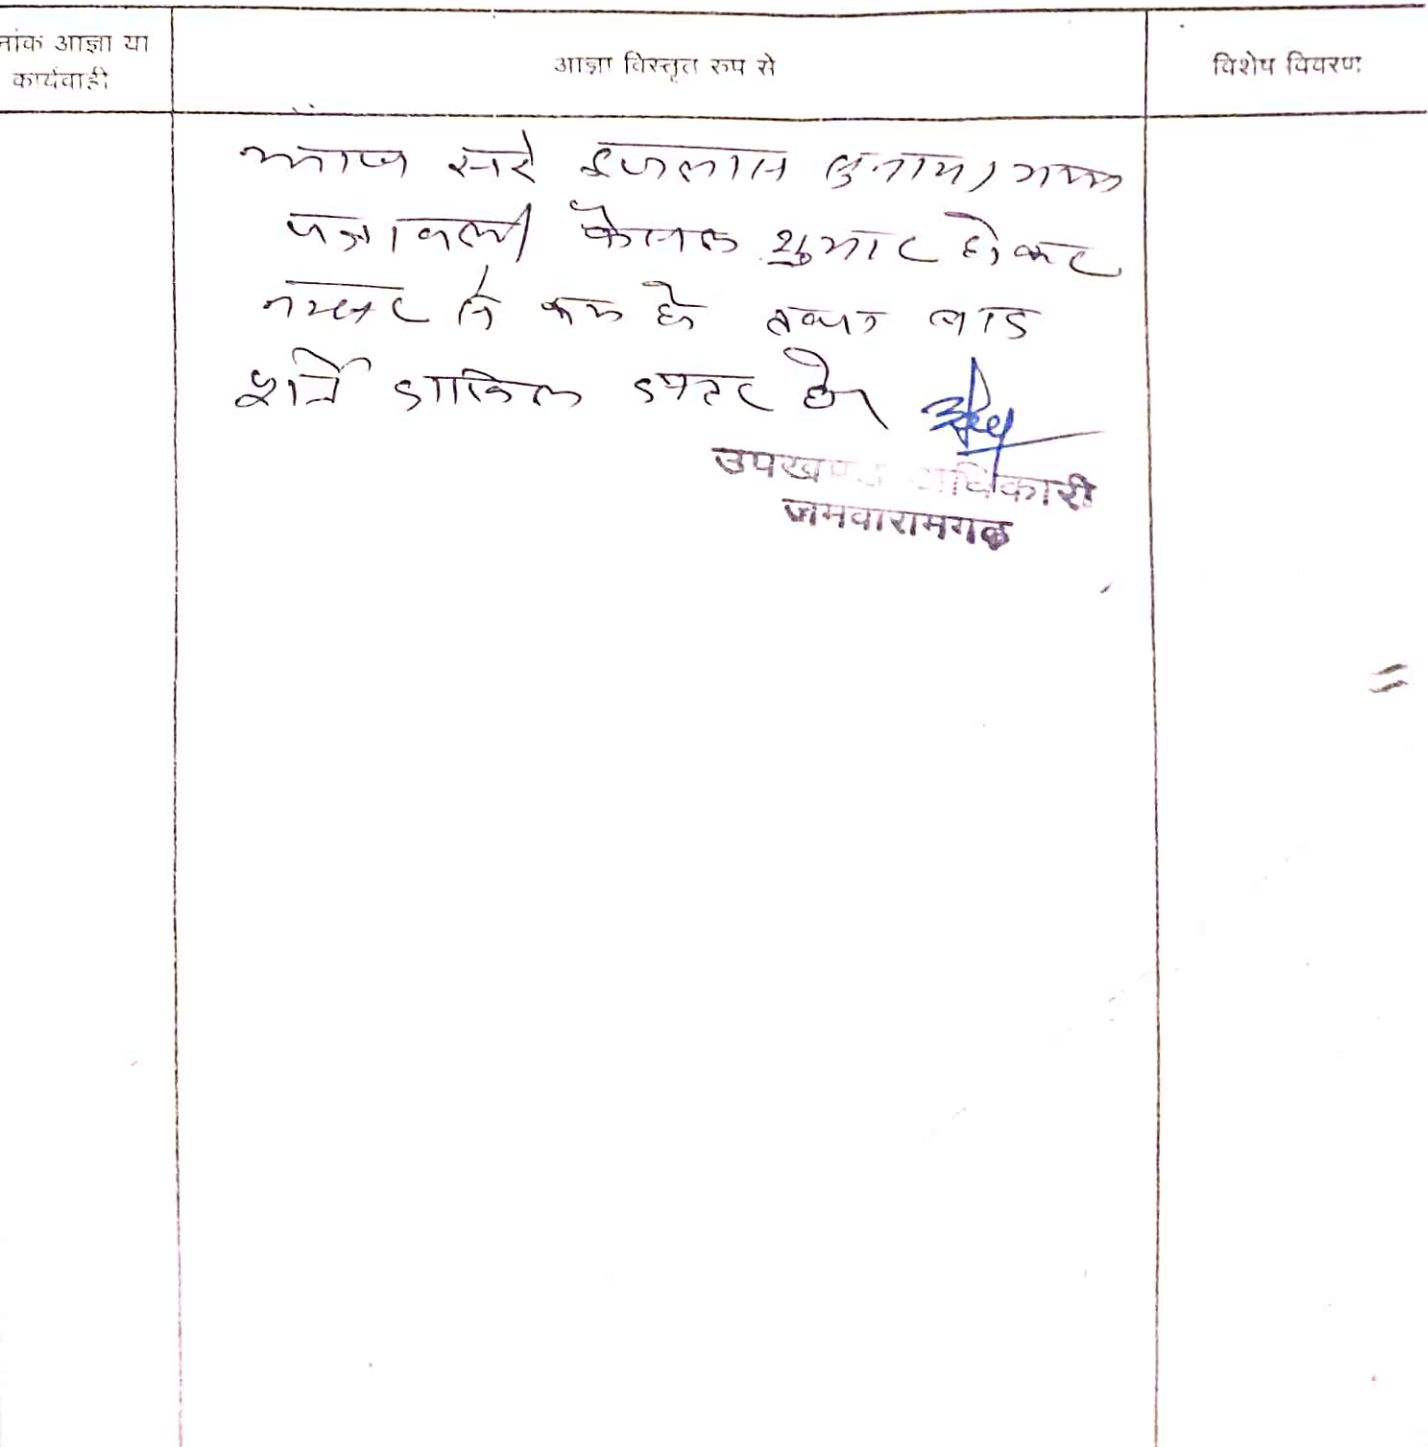 नांक आज्ञा या
कार्यवाही
आज्ञा विस्तृत रूप से
विशेष विवरण
आज सरे इजलास सुनाया गया
पत्रावली फैसल शुमार होकर
नम्बर से कम हो तथा बाद
शर्ते दाखिल दफ्तर हो।
उपखण्ड अधिकारी
जमवारामगढ